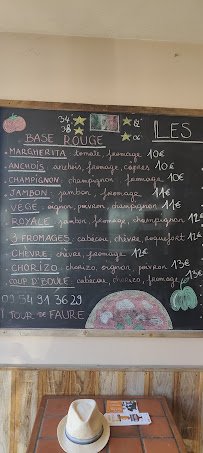 LES
BASE ROUGE
. MARGHERITA : tomate, fromage 10€
. ANCHOIS : anchois, câpres 10€
. CHAMPIGNON : champignon, fromage 10€
. JAMBON : jambon, fromage 11€
. VEGE : oignon, poivron, champignon 11€
. ROYALE : jambon, fromage, champignon 12€
. 3 FROMAGES : cabécou, chèvre, roquefort 12€
. CHÈVRE : chèvre, fromage 12€
. CHORIZO : chorizo, oignon, poivron 13€
. COUP D'BOULE : cabécou, chorizo, fromage 13€
TOUR DE FAURE